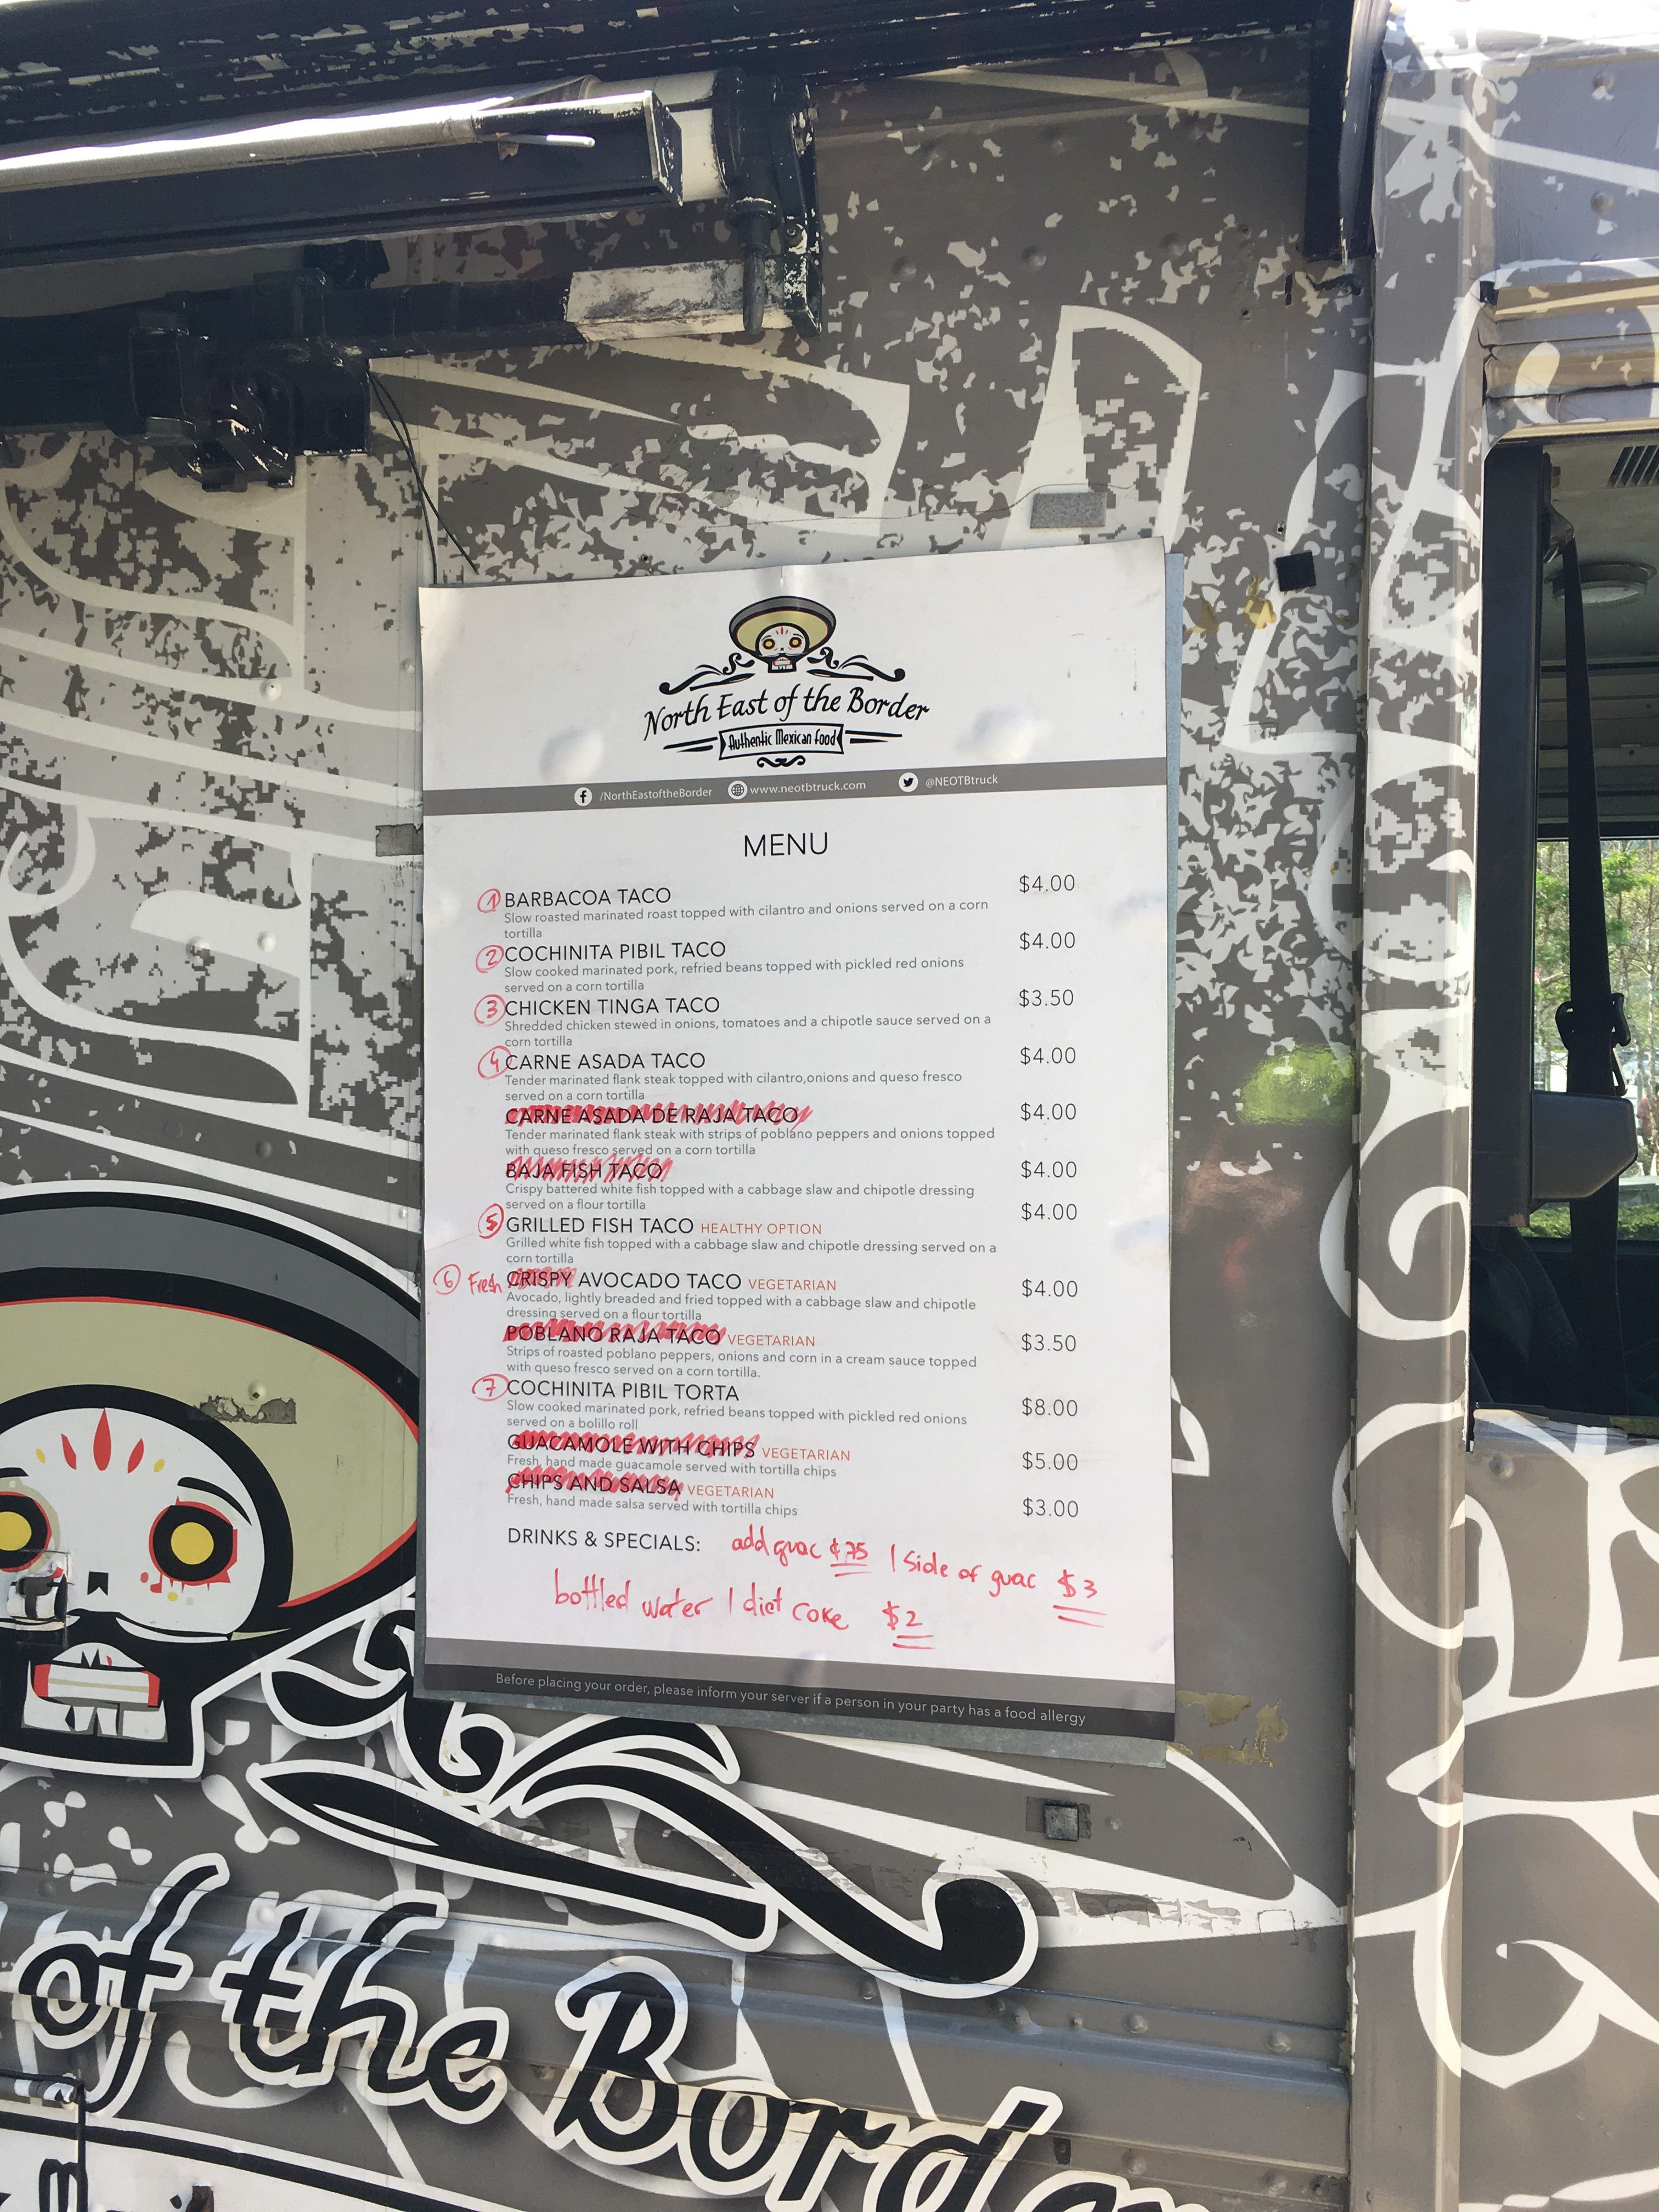 North East of the Border
Authentic Mexican Food
/NorthEastoftheBorder www.neotbtruck.com @NEOTBtruck
MENU
1 BARBACOA TACO $4.00
Slow roasted marinated roast topped with cilantro and onions served on a corn
tortilla
2 COCHINITA PIBIL TACO $4.00
Slow cooked marinated pork, refried beans topped with pickled red onions
served on a corn tortilla
3 CHICKEN TINGA TACO $3.50
Shredded chicken stewed in onions, tomatoes and a chipotle sauce served on a
corn tortilla
4 CARNE ASADA TACO $4.00
Tender marinated flank steak topped with cilantro,onions and queso fresco
served on a corn tortilla
CARNE ASADA DE RAJA TACO $4.00
Tender marinated flank steak with strips of poblano peppers and onions topped
with queso fresco served on a corn tortilla
BAJA FISH TACO $4.00
Crispy battered white fish topped with a cabbage slaw and chipotle dressing
served on a flour tortilla
5 GRILLED FISH TACO HEALTHY OPTION $4.00
Grilled white fish topped with a cabbage slaw and chipotle dressing served on a
corn tortilla
6 Fresh CRISPY AVOCADO TACO VEGETARIAN $4.00
Avocado, lightly breaded and fried topped with a cabbage slaw and chipotle
dressing served on a flour tortilla
POBLANO RAJA TACO VEGETARIAN $3.50
Strips of roasted poblano peppers, onions and corn in a cream sauce topped
with queso fresco served on a corn tortilla.
7 COCHINITA PIBIL TORTA $8.00
Slow cooked marinated pork, refried beans topped with pickled red onions
served on a bolillo roll
GUACAMOLE WITH CHIPS VEGETARIAN $5.00
Fresh, hand made guacamole served with tortilla chips
CHIPS AND SALSA VEGETARIAN $3.00
Fresh, hand made salsa served with tortilla chips
DRINKS & SPECIALS: add guac $.75 | side of guac $3
bottled water | diet coke $2
Before placing your order, please inform your server if a person in your party has a food allergy
of the Border